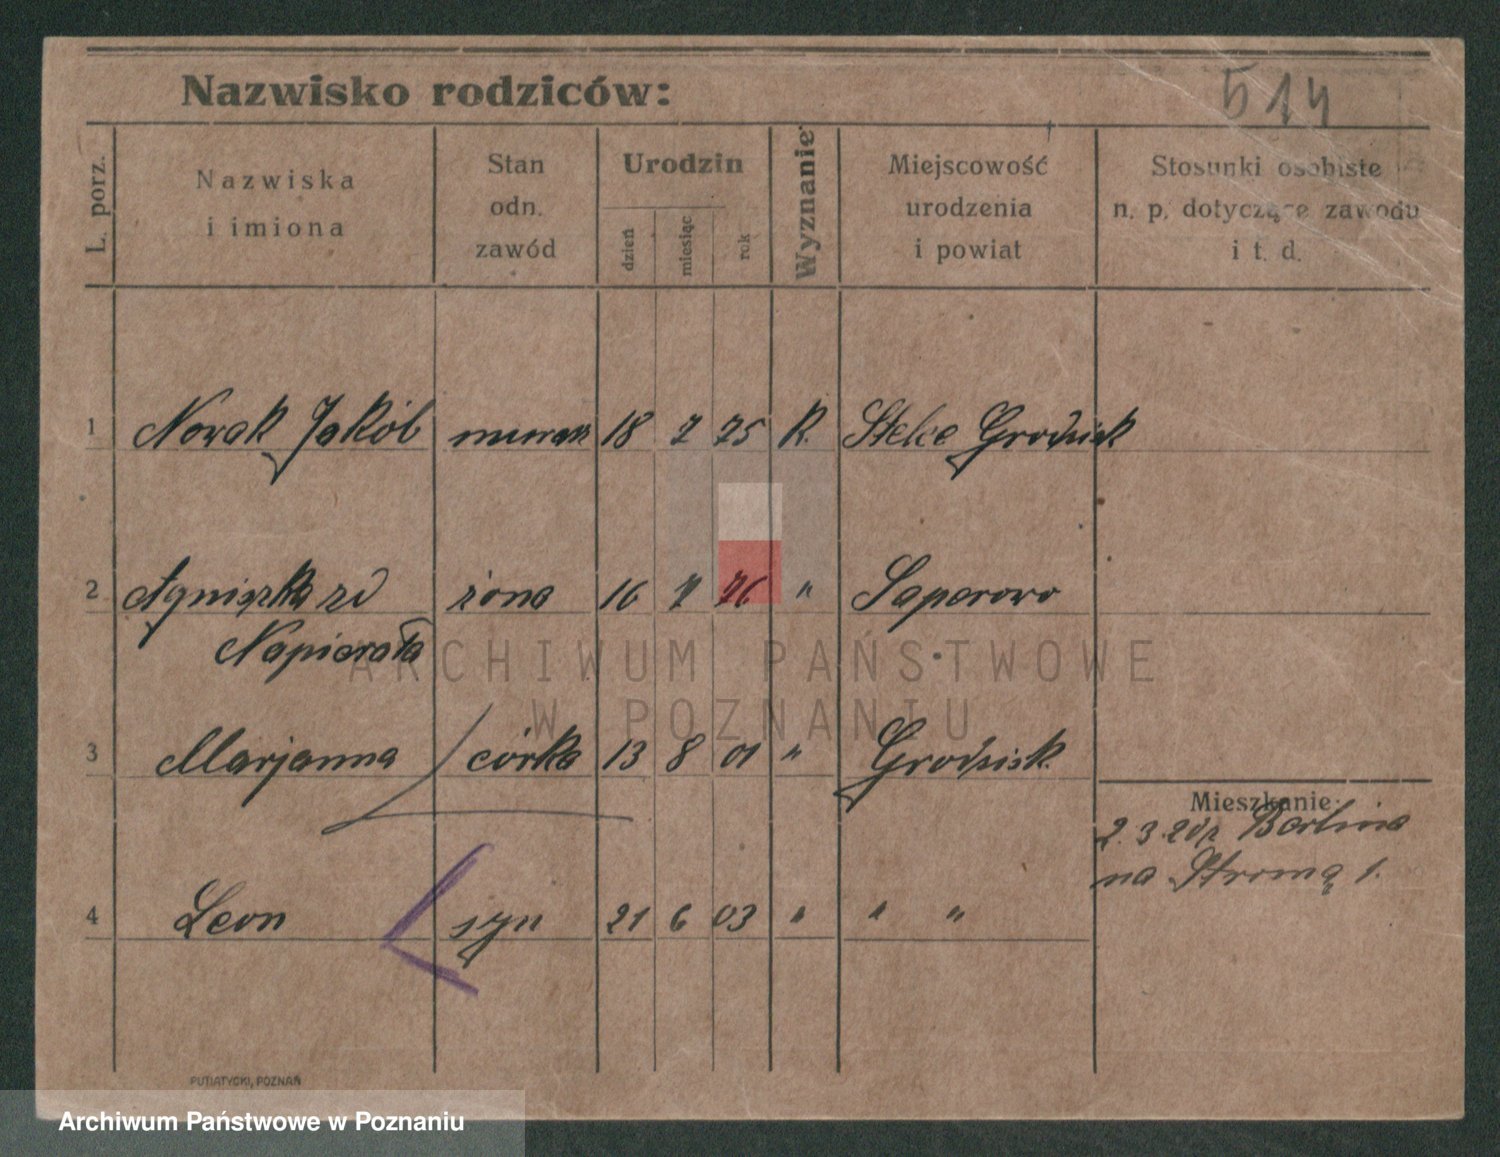 Nazwisko rodziców:
514
L. porz.
Nazwiska
i imiona
Stan
odn.
zawód
Urodzin
dzień
miesiąc
rok
Wyznanie
Miejscowość
urodzenia
i powiat
Stosunki osobiste
n. p. dotyczące zawodu
i t. d.
1 Nowak Jakób murarz 18 7 75 K. Grodzisk
2 Agnieszka zd żona 16 76 " Saperowo
Napierała
3 Marjanna córka 13 8 01 " Grodzisk
Mieszkanie:
2.3.20 z Berlina
na Stromą 1.
4 Leon syn 21 6 03 " " "
PUTIATYCKI, POZNAŃ
ARCHIWUM PAŃSTWOWE
W POZNANIU
Archiwum Państwowe w Poznaniu